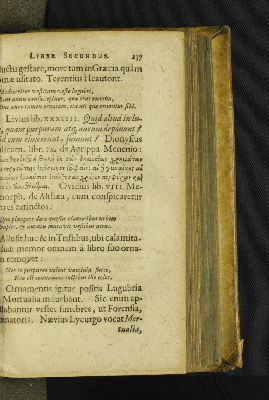 LIBER SECUNDUS. 239
luctu gestare, more tam in Græcia quàm
omæ usitato. Terentius Heautont.
Mediocriter vestitam veste lugubri,
sine auro tum ornatam, ita uti quæ ornantur sibi.
Livius lib. XXXIIII. Quid aliud in lu-
, quàm purpuram atq; aurum deponunt?
id cum eluxerunt, sumunt? Dionysius
alicarn. lib. IX. de Agrippa Menenio:
Ovidius lib. VIII. Me-
morph. de Althæa, cum conspicaretur
tres extinctos:
Quæ plangore dato mœstis clamoribus urbem
Implet, & auratis mutavit vestibus atras.
Allusit huc & in Tristibus, ubi calamita-
suæ memor omnem à libro suo orna-
m removet:
Nec te purpureo velent vaccinia succo,
Non est conveniens luctibus ille color.
Ornamentis igitur positis Lugubria
Mortualia induebant. Sic enim ap-
llabantur vestes funebres, ut Forensia,
œnatoria. Nævius Lycurgo vocat Mor-
tualia,